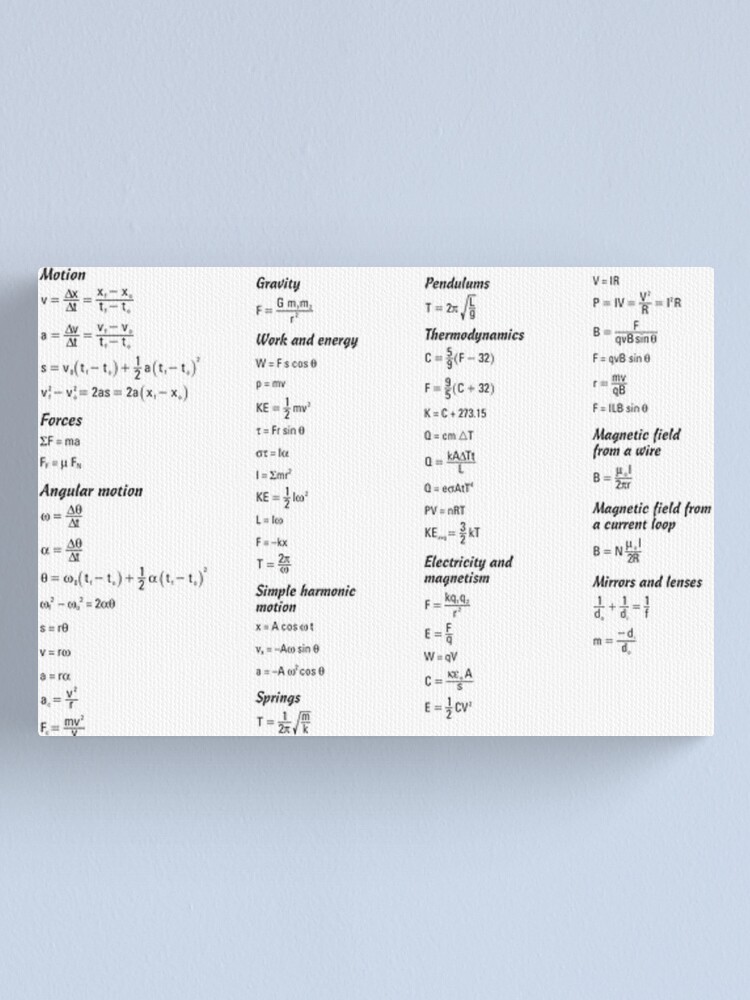 Motion
v = Δx/Δt = (x₁ − x₀)/(t₁ − t₀)
a = Δv/Δt = (v₁ − v₀)/(t₁ − t₀)
s = v₀(t₁ − t₀) + 1/2 a(t₁ − t₀)²
v₁² − v₀² = 2as = 2a(x₁ − x₀)
Forces
ΣF = ma
F_F = μ F_N
Angular motion
ω = Δθ/Δt
α = Δθ/Δt
θ = ω₀(t₁ − t₀) + 1/2 α(t₁ − t₀)²
ω₁² − ω₀² = 2αθ
s = rθ
v = rω
a = rα
a_c = v²/r
F_c = mv²/v
Gravity
F = G m₁m₂/r²
Work and energy
W = F s cos θ
p = mv
KE = 1/2 mv²
τ = Fr sin θ
στ = Iα
I = Σmr²
KE = 1/2 Iω²
L = Iω
F = −kx
T = 2π/ω
Simple harmonic
motion
x = A cos ω t
vₓ = −Aω sin θ
a = −A ω² cos θ
Springs
T = 1/2π √(m/k)
Pendulums
T = 2π √(L/g)
Thermodynamics
C = 5/9 (F − 32)
F = 9/5 (C + 32)
K = C + 273.15
Q = cm △T
Q = kAΔTt/L
Q = eσAtT⁴
PV = nRT
KE_avg = 3/2 kT
Electricity and
magnetism
F = kq₁q₂/r²
E = F/q
W = qV
C = κε₀A/s
E = 1/2 CV²
V = IR
P = IV = V²/R = I²R
B = F/(qvB sin θ)
F = qvB sin θ
r = mv/qB
F = ILB sin θ
Magnetic field
from a wire
B = μ₀I/2πr
Magnetic field from
a current loop
B = N μ₀I/2R
Mirrors and lenses
1/d₀ + 1/dᵢ = 1/f
m = −dᵢ/d₀